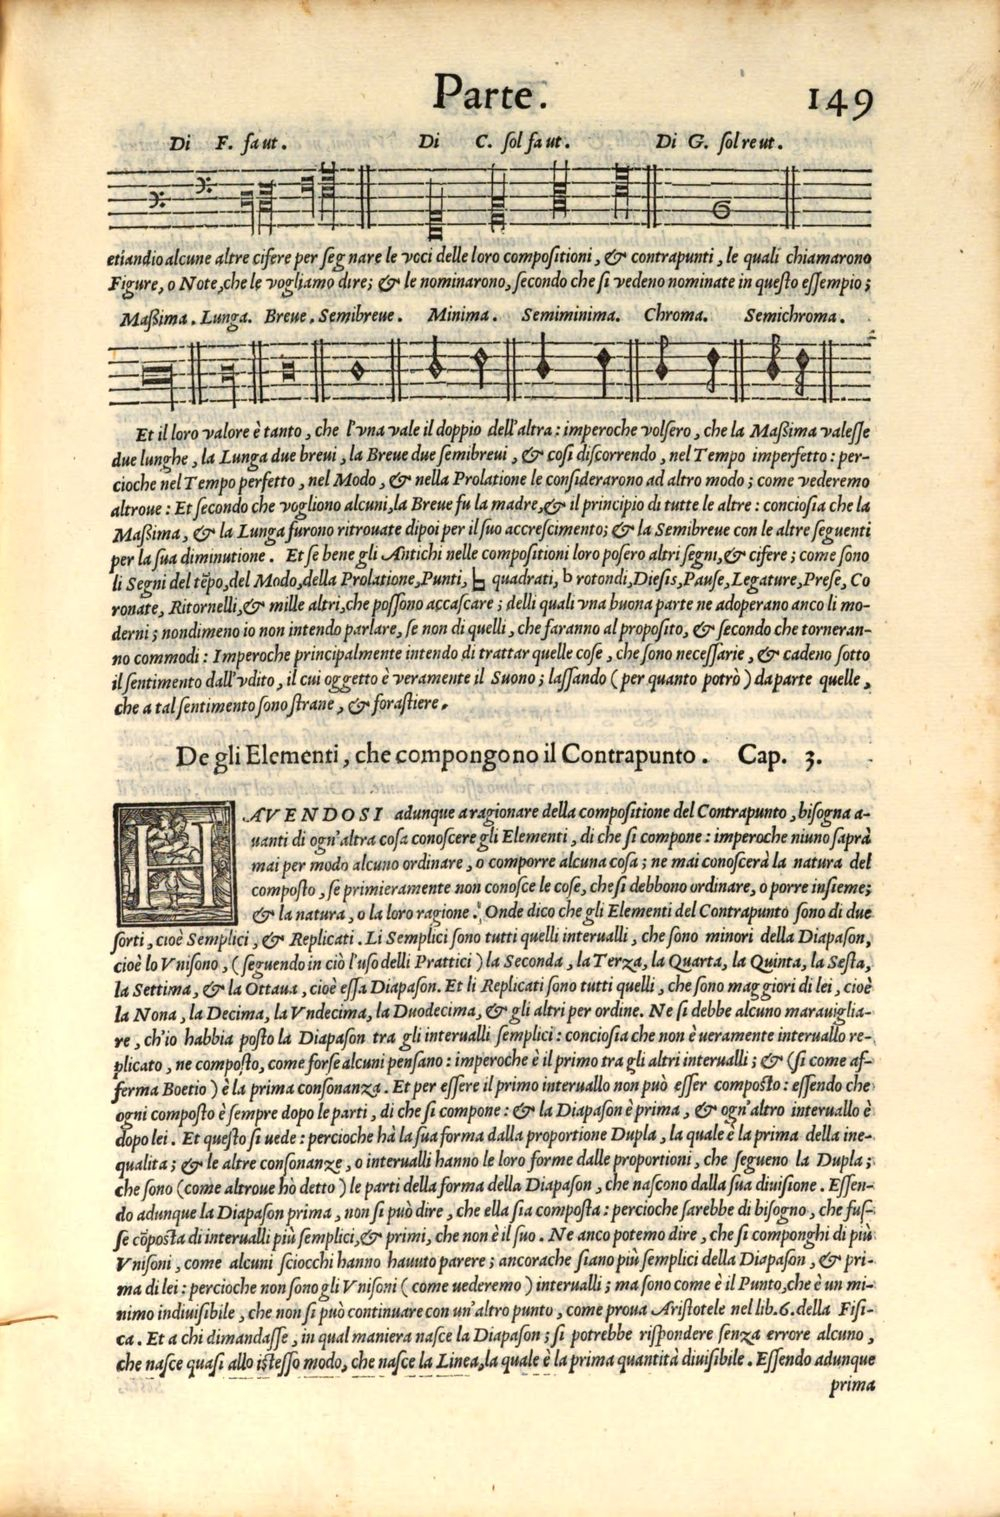 Parte. 149
Di F. faut. Di C. solfaut. Di G. solreut.
etiandio alcune altre cifere per segnare le voci delle loro compositioni, & contrapunti, le quali chiamarono
Figure, o Note, che le vogliamo dire; & le nominarono, secondo che si vedeno nominate in questo essempio;
Maßima. Lunga. Breue. Semibreue. Minima. Semiminima. Chroma. Semichroma.
Et il loro valore è tanto, che l'vna vale il doppio dell'altra: imperoche volsero, che la Maßima valesse
due lunghe, la Lunga due breui, la Breue due semibreui, & cosi discorrendo, nel Tempo imperfetto: per-
cioche nel Tempo perfetto, nel Modo, & nella Prolatione le considerarono ad altro modo; come vederemo
altroue: Et secondo che vogliono alcuni, la Breue fu la madre, & il principio di tutte le altre: conciosia che la
Maßima, & la Lunga furono ritrouate dipoi per il suo accrescimento; & la Semibreue con le altre seguenti
per la sua diminutione. Et se bene gli Antichi nelle compositioni loro posero altri segni, & cifere; come sono
li Segni del tẽpo, del Modo, della Prolatione, Punti, ♮ quadrati, b rotondi, Diesis, Pause, Legature, Prese, Co
ronate, Ritornelli, & mille altri, che possono accascare; delli quali vna buona parte ne adoperano anco li mo-
derni; nondimeno io non intendo parlare, se non di quelli, che faranno al proposito, & secondo che torneran-
no commodi: Imperoche principalmente intendo di trattar quelle cose, che sono necessarie, & cadeno sotto
il sentimento dall'vdito, il cui oggetto è veramente il Suono; lassando (per quanto potrò) da parte quelle,
che a tal sentimento sono strane, & forastiere.
De gli Elementi, che compongono il Contrapunto. Cap. 3.
HAVENDOSI adunque a ragionare della compositione del Contrapunto, bisogna a-
uanti di ogn'altra cosa conoscere gli Elementi, di che si compone: imperoche niuno saprà
mai per modo alcuno ordinare, o comporre alcuna cosa; ne mai conoscerà la natura del
composto, se primieramente non conosce le cose, che si debbono ordinare, o porre insieme;
& la natura, o la loro ragione. Onde dico che gli Elementi del Contrapunto sono di due
sorti, cioè Semplici, & Replicati. Li Semplici sono tutti quelli interualli, che sono minori della Diapason,
cioè lo Vnisono, (seguendo in ciò l'uso delli Prattici) la Seconda, la Terza, la Quarta, la Quinta, la Sesta,
la Settima, & la Ottaua, cioè essa Diapason. Et li Replicati sono tutti quelli, che sono maggiori di lei, cioè
la Nona, la Decima, la Vndecima, la Duodecima, & gli altri per ordine. Ne si debbe alcuno marauiglia-
re, ch'io habbia posto la Diapason tra gli interualli semplici: conciosia che non è ueramente interuallo re-
plicato, ne composto, come forse alcuni pensano: imperoche è il primo tra gli altri interualli; & (si come af-
ferma Boetio) è la prima consonanza. Et per essere il primo interuallo non può esser composto: essendo che
ogni composto è sempre dopo le parti, di che si compone: & la Diapason è prima, & ogn'altro interuallo è
dopo lei. Et questo si uede: percioche hà la sua forma dalla proportione Dupla, la quale è la prima della ine-
qualita; & le altre consonanze, o interualli hanno le loro forme dalle proportioni, che segueno la Dupla;
che sono (come altroue hò detto) le parti della forma della Diapason, che nascono dalla sua diuisione. Essen-
do adunque la Diapason prima, non si può dire, che ella sia composta: percioche sarebbe di bisogno, che fus-
se cõposta di interualli più semplici, & primi, che non è il suo. Ne anco potemo dire, che si componghi di più
Vnisoni, come alcuni sciocchi hanno hauuto parere; ancorache siano più semplici della Diapason, & pri-
ma di lei: percioche non sono gli Vnisoni (come uederemo) interualli; ma sono come è il Punto, che è un mi-
nimo indiuisibile, che non si può continuare con un'altro punto, come proua Aristotele nel lib. 6. della Fisi-
ca. Et a chi dimandasse, in qual maniera nasce la Diapason; si potrebbe rispondere senza errore alcuno,
che nasce quasi allo istesso modo, che nasce la Linea, la quale è la prima quantità diuisibile. Essendo adunque
prima